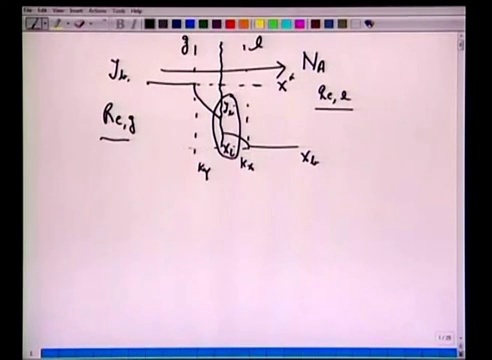 File Edit View Insert Actions Tools Help
g l
y_b N_A
x*
Re,g Re,l
y_i
x_i x_b
k_y k_x
1/28